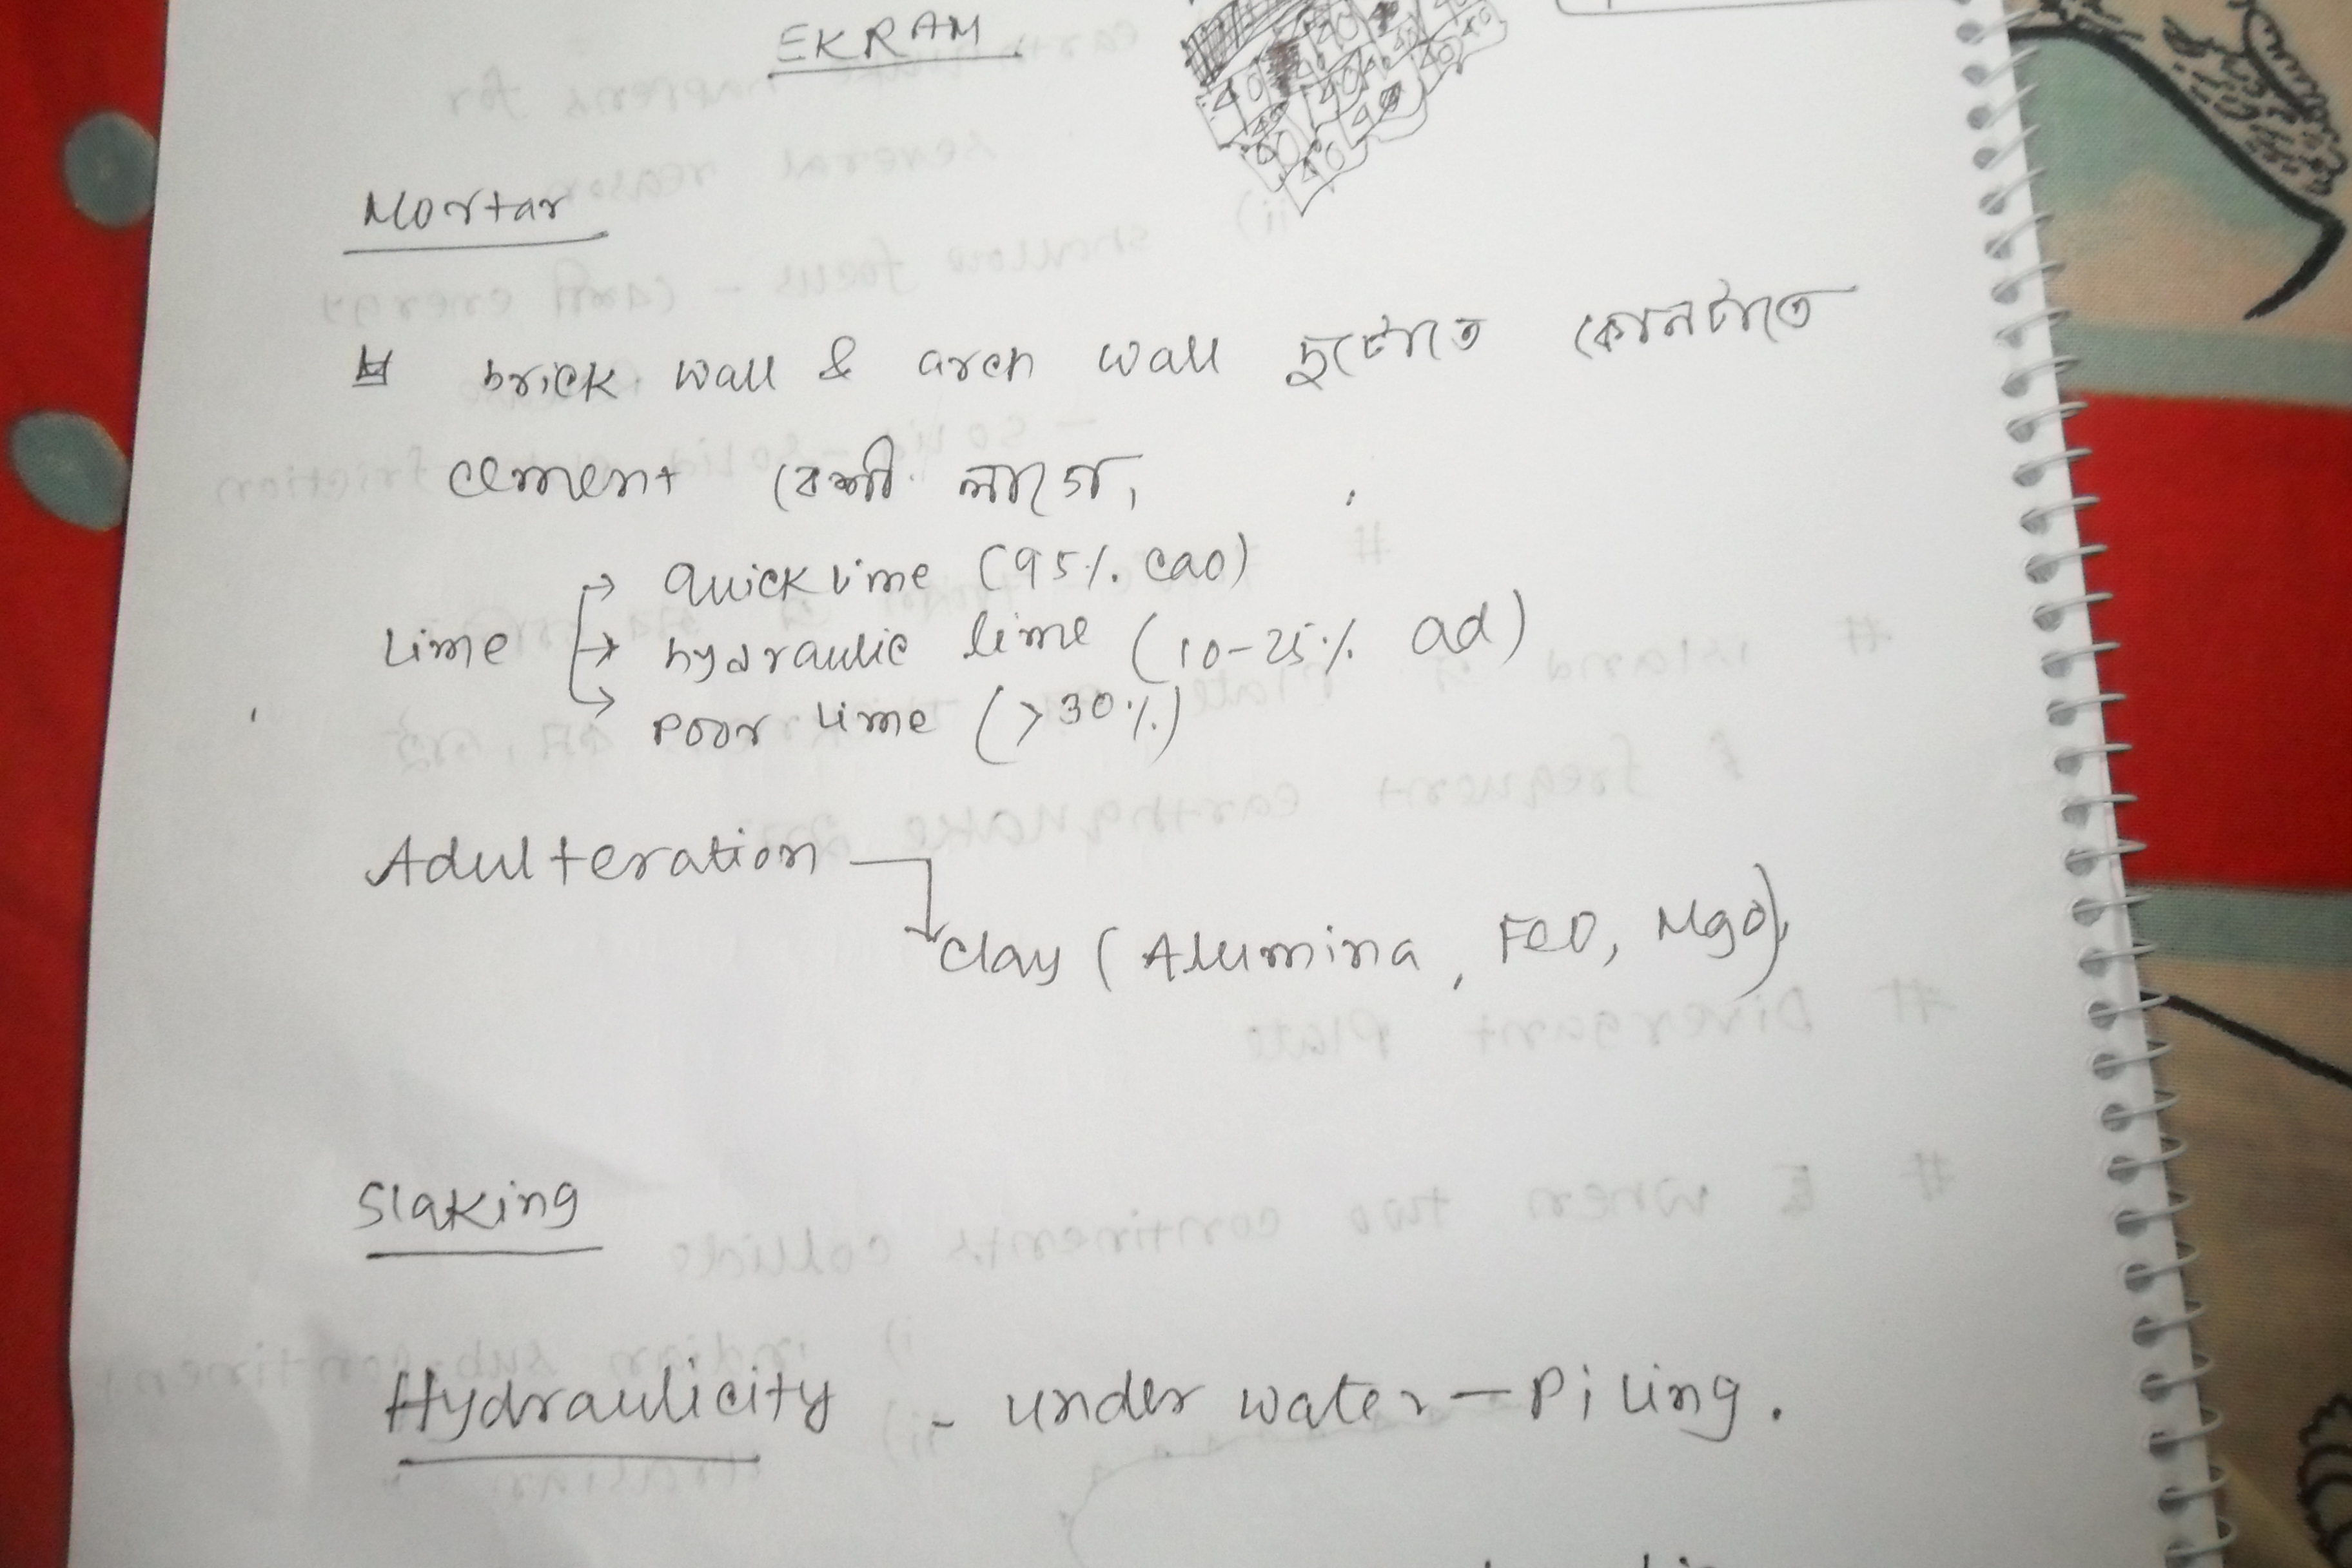 EKRAM
Mortar
# brick wall & arch wall দুটোতে কোনটাতে
cement বেশী লাগে,
Lime → Quick lime (95% cao)
→ hydraulic lime (10-25% ad)
→ Poor lime (>30%)
Adulteration
Clay (Alumina, FeO, MgO),
Slaking
Hydraulicity - under water - Piling.